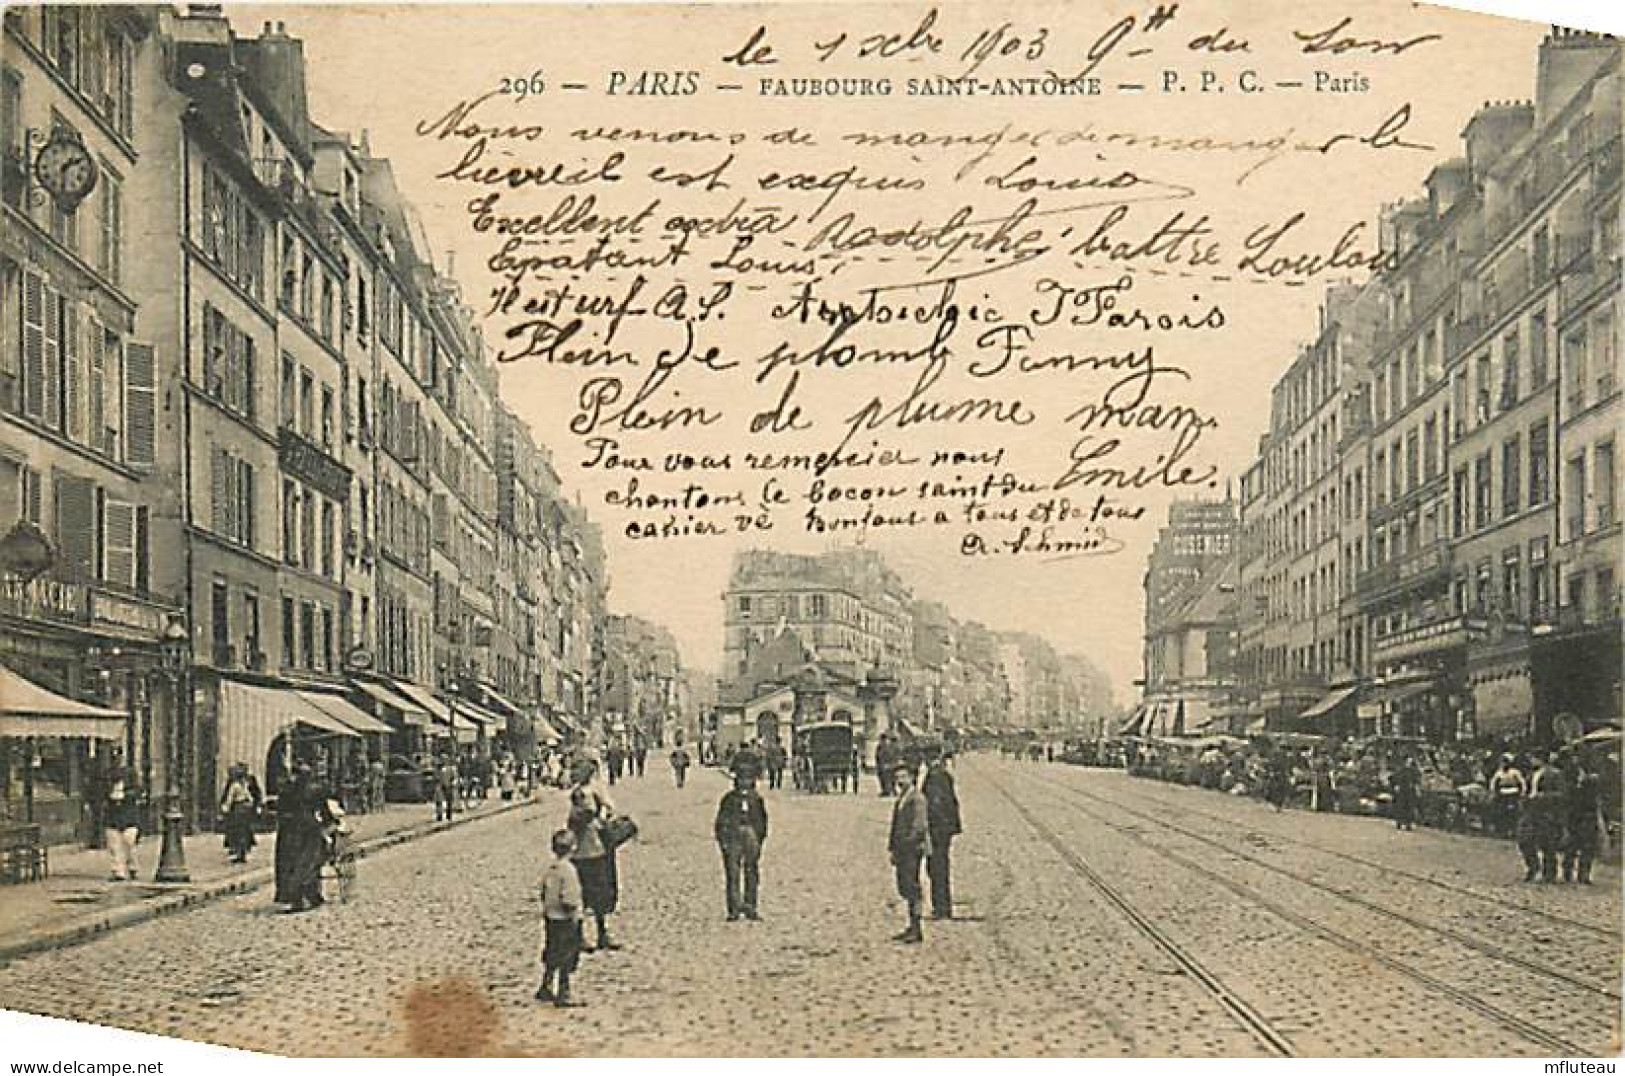 le 1 xbre 1903 9H du Soir
296 — PARIS — FAUBOURG SAINT-ANTOINE — P. P. C. — Paris
Nous venons de manger de manger le
lièvreil est exquis Louis
Excellent extra Rodolphe battre Loulou
Epatant Louis
Il est urf A.S. J Farois
Plein de plomb Fanny
Plein de plume man
Pour vous remercier nous Emile.
chantons le bocon saint du
cahier vè bonjour a tous et de tous
Ch. Schmid
mfluteau